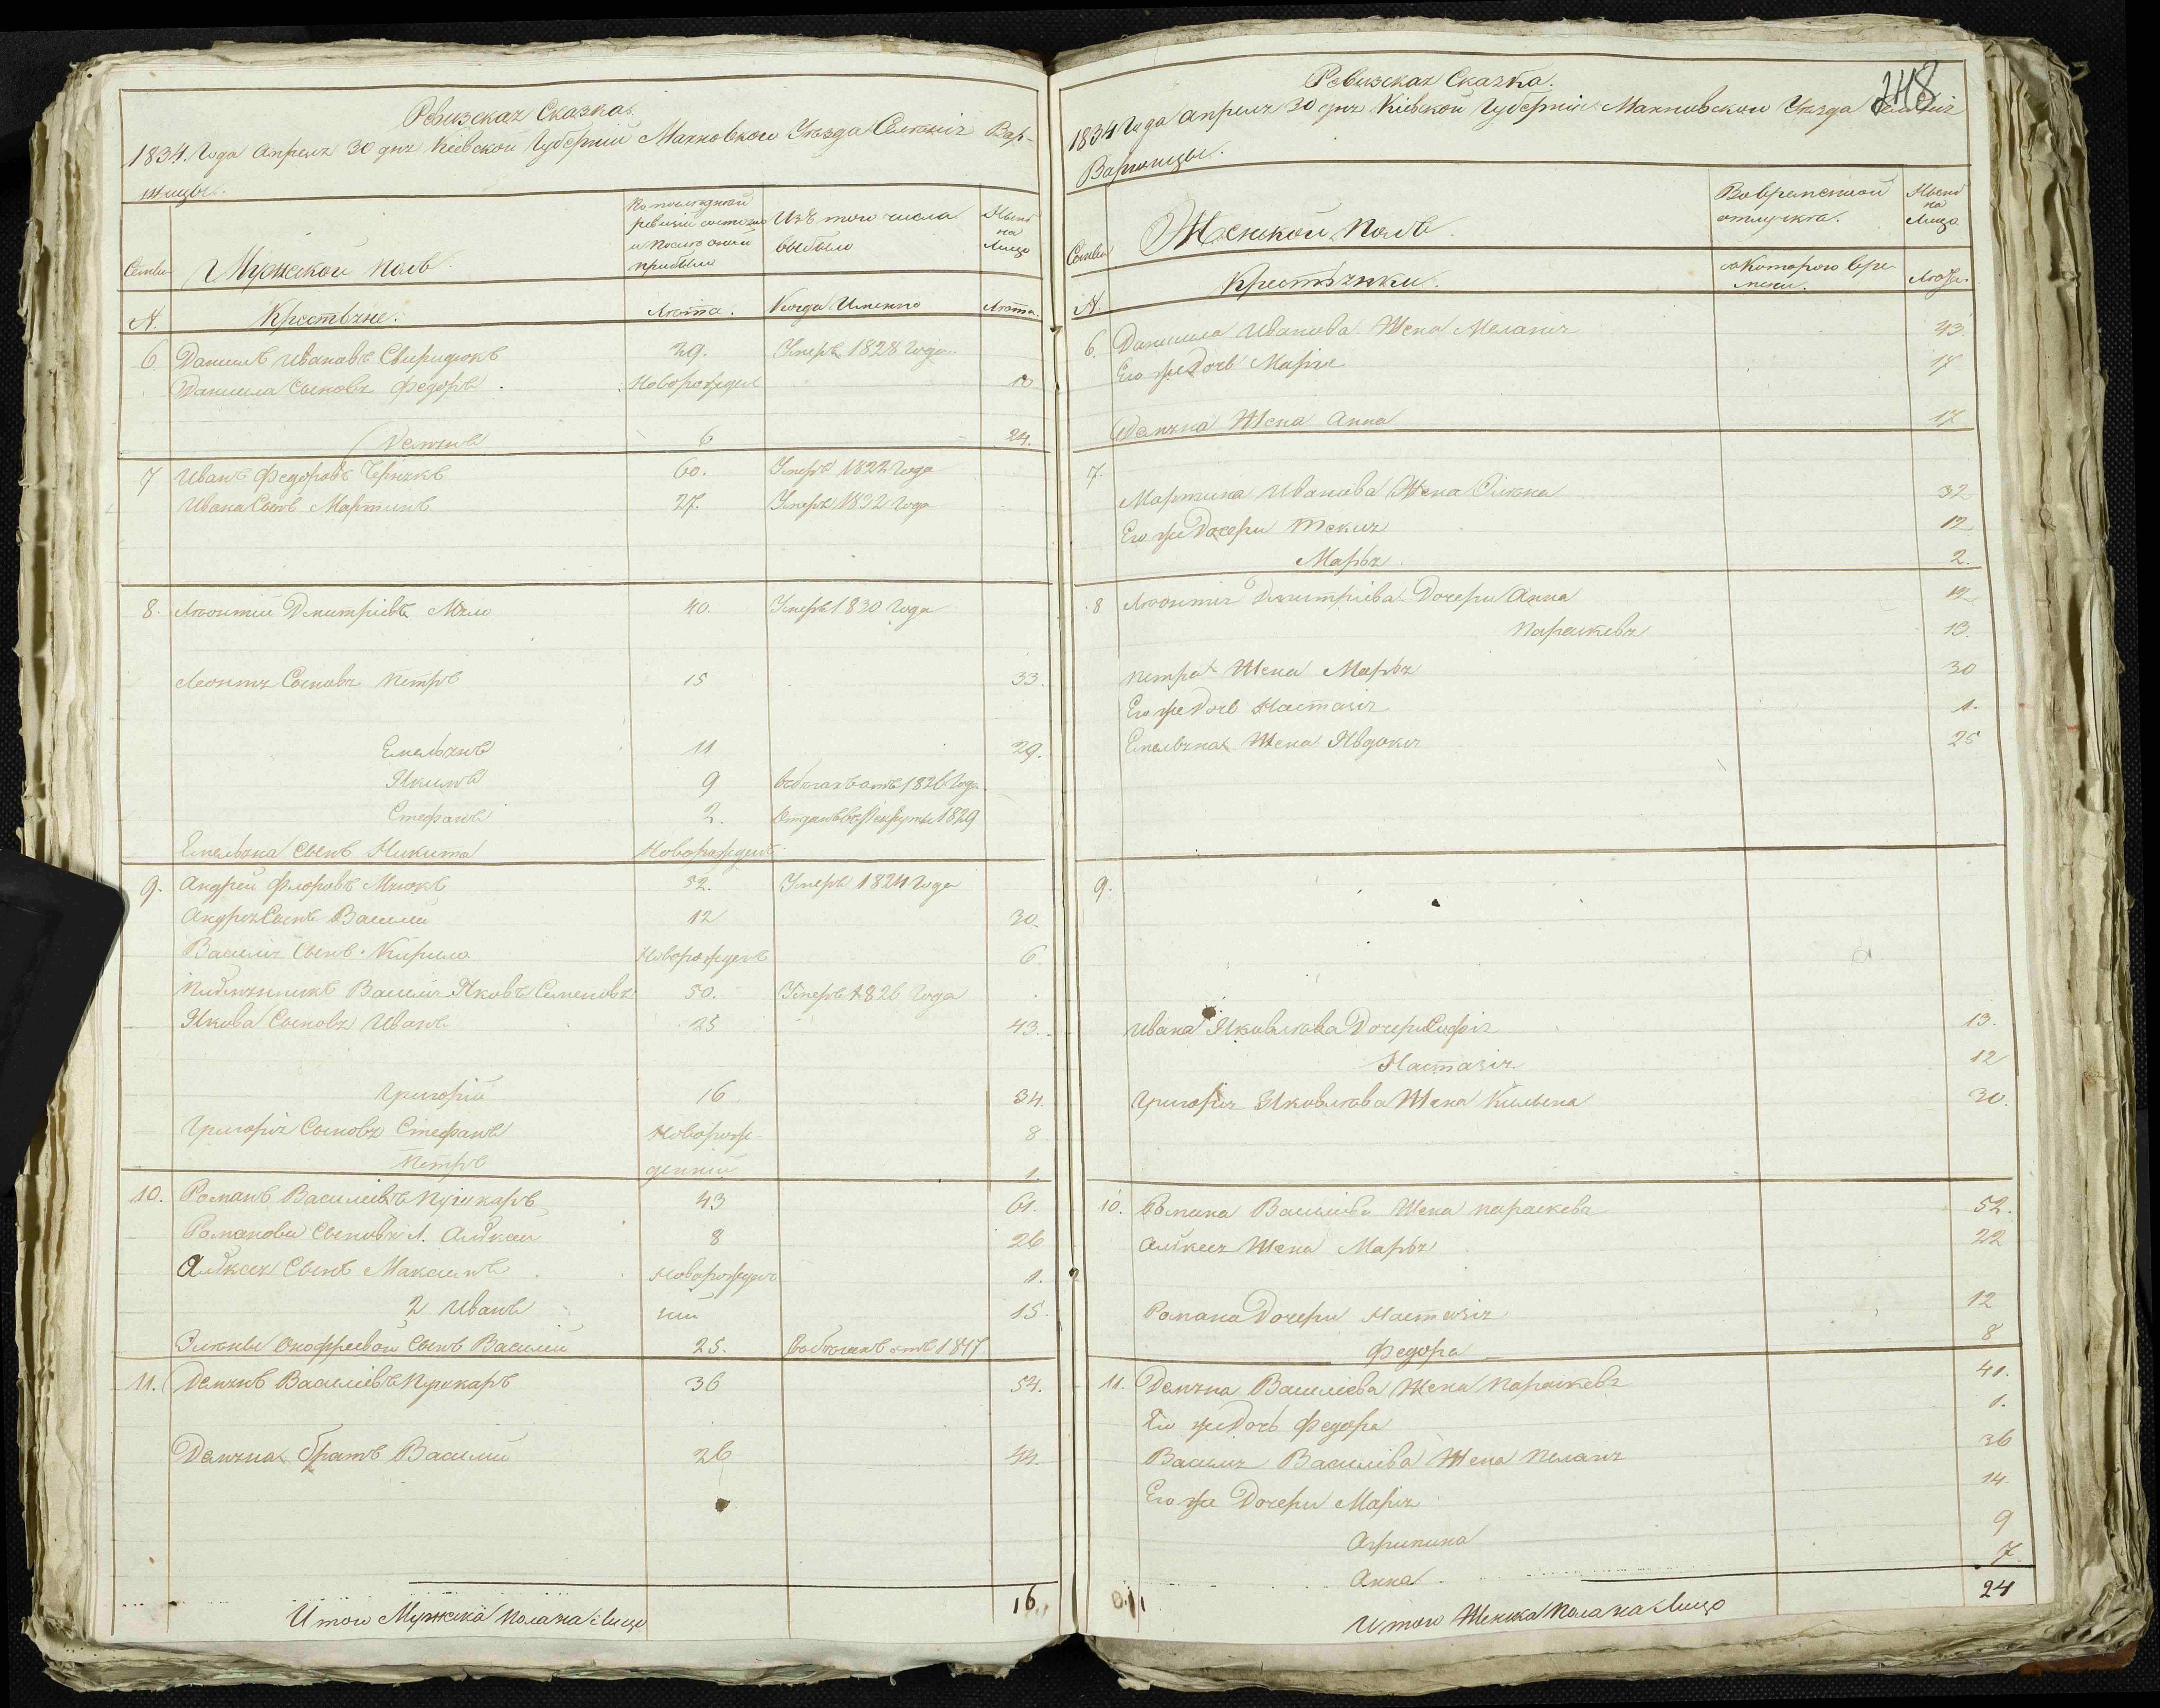 Ревизская Сказка
1834. Года апреля 30 дня Кіевской Губерніи Махновского Уезда Селенія Вар-
шицы.
Семьи
Мужской полъ
По последней
ревизіи состояло
и после оной
прибыло
Изъ того числа
выбыло
Ныне
на
Лицо
N.
Крестьяне.
Лѣта.
Когда Именно
Лѣта.
6. Данилъ Ивановъ Свиридюкъ 39. Умеръ 1828 Года
Данила Сыновя Федоръ Новорожден 10
Демянъ 6 24.
7 Иванъ Федоровъ Чернякъ 60. Умеръ 1822 Года
Ивана Сынъ Мартинъ 27. Умеръ 1832 Года
8. Леонтій Дмитріевъ 40. Умеръ 1830 Года
Леонтя Сыновя Петръ 15 33.
Емельянъ 11 29.
Якимъ 9 въ бегахъ отъ 1826 Года
Стефанъ 2. Отданъ въ Рекруты 1829
Емельяна Сынъ Никита Новорожден
9. Андрей Флоровъ 52. Умеръ 1824 Года
Андрея Сынъ Василий 12 30.
Василия Сынъ Кирило Новорожденъ 6.
Василия Яковъ Семеновъ 50. Умеръ 1826 Года
Якова Сыновя Иванъ 25 43.
Григорій 16 34.
Григорія Сыновя Стефанъ Новорож- 8
Петръ денніи 1.
10. Романъ Василіевъ Пушкаръ 43 61.
Романови Сыновя 1. Алексеи 8 26
Алексея Сынъ Максимъ Новорожден 1.
2 Иванъ ний 15.
Онофреевой Сынъ Василий 25. въ бегахъ отъ 1817.
11. Демянъ Василіевъ Пушкаръ 36 54.
Демяна братъ Василий 26 44.
Итого Мужеска пола на Лицо 16.
Ревизская Сказка.
248
1834 Года апреля 30 дня Кіевской Губерніи Махновского Уезда Селенія
Варшицы.
Семьи
Женской Полъ.
Вовременной
отлучкѣ.
Ныне
на
Лицо
N.
Крестьянки.
съ Которого вре-
мени.
Лѣта.
6. Данила Иванова Жена Меланія 43.
Его же Дочь Марія 17
Демяна Жена Анна 17
7.
Мартина Иванова Жена 32
Его же Дочери Текля 12
Марья 2.
8 Леонтія Дмитріева Дочери Анна 12
Параскевя 13.
Петра Жена Марья 30
Его же Дочь Настазія 1.
Емельяна Жена Явдокія 25
9.
Ивана Яковлева Дочери Софія 13.
Настазія 12
Григорія Яковлева Жена 30.
10. Романа Василіева Жена Параскевя 52.
Алексея Жена Марья 22
Романа Дочери Настазія 12
Федора 8
11. Демяна Василіева Жена Параскевя 41.
Его же Дочь Федора 1.
Василія Василіева Жена Пелагія 36
Его же Дочери Марія 14.
Агрипина 9
Анна 7.
Итого Женска Пола на Лицо 24